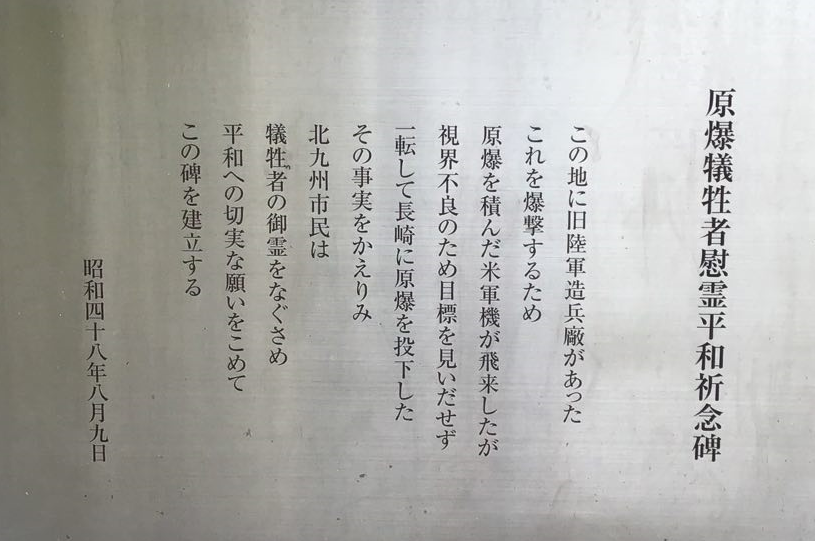 原爆犠牲者慰霊平和祈念碑
この地に旧陸軍造兵廠があった
これを爆撃するため
原爆を積んだ米軍機が飛来したが
視界不良のため目標を見いだせず
一転して長崎に原爆を投下した
その事実をかえりみ
北九州市民は
犠牲者の御霊をなぐさめ
平和への切実な願いをこめて
この碑を建立する
昭和四十八年八月九日